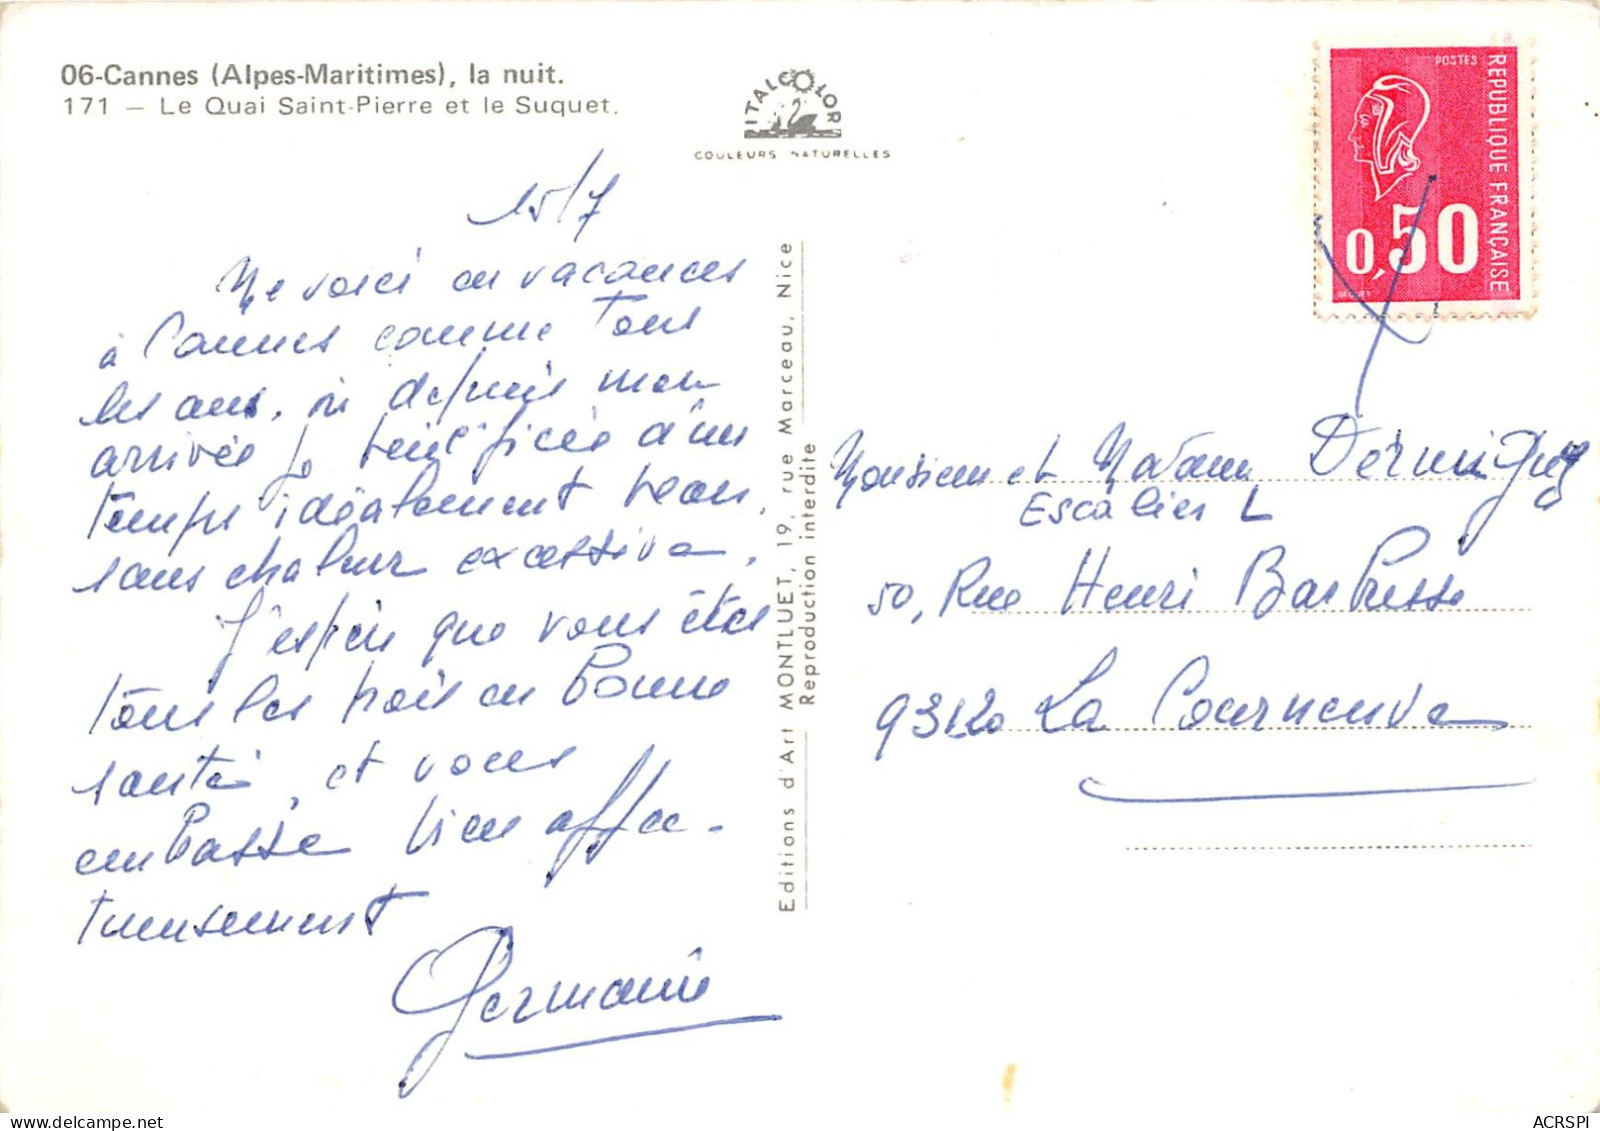 06-Cannes (Alpes-Maritimes), la nuit.
171 — Le Quai Saint-Pierre et le Suquet.
ITALCOLOR
COULEURS NATURELLES
15/7
Me voici en vacances
à Cannes comme tous
les ans, où depuis mon
arrivée je bénéficie d'un
temps idéalement beau,
sans chaleur excessive.
J'espère que vous êtes
tous les trois en bonne
santé, et vous
embrasse bien affec-
tueusement
Germaine
Editions d'Art MONTLUET, 19, rue Marceau, Nice
Reproduction interdite
POSTES
REPUBLIQUE FRANÇAISE
0,50
Monsieur et Madame
Escalier L
50, Rue Henri Barbusse
93120 La Courneuve
ACRSPI